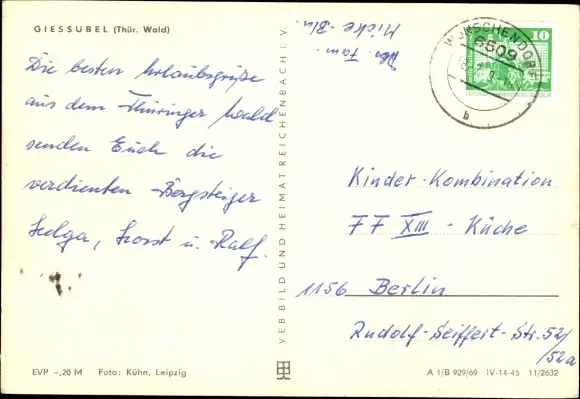 GIESSÜBEL (Thür. Wald)
Die besten Urlaubsgrüße
aus dem Thüringer Wald
senden Euch die
verdienten Bergsteiger
Helga, Horst u. Ralf.
EVP -,20 M Foto: Kühn, Leipzig
VEB BILD UND HEIMAT REICHENBACH I. V.
Abs. Fam.
Micke - Bln.
WÜNSCHENDORF
6509
b
10
Kinder-Kombination
FF XIII - Küche
1156 Berlin
Rudolf-Seiffert-Str. 52/
/52a
A 1/B 929/69 IV-14-45 11/2632